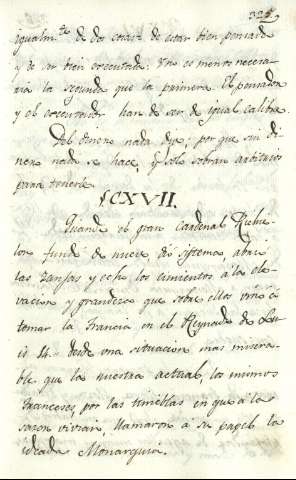 325
igualm.te de dos cosas: de estar bien pensada
y de ser bien executada: Y no es menos necesa-
ria la segunda que la primera. El pensador
y el executador han de ser de igual calibre.
Del dinero nada dije; por que sin di-
nero nada se hace, y solo sobran arbitrios
para tenerle.
§CXVII.
Quando el gran Cardenal Richie-
leu fundó de nueve dió sistema, abrió
las zanjas y echó los cimientos á la ele-
vacion y grandeza que sobre ellos vino á
tomar la Francia en el Reynado de Lui-
s 14. desde una situacion mas misera-
ble que la nuestra actual, los mismos
Franceses, por las tinieblas en que á la
sazon vivian, llamaron á su papel la
ideada Monarquia.